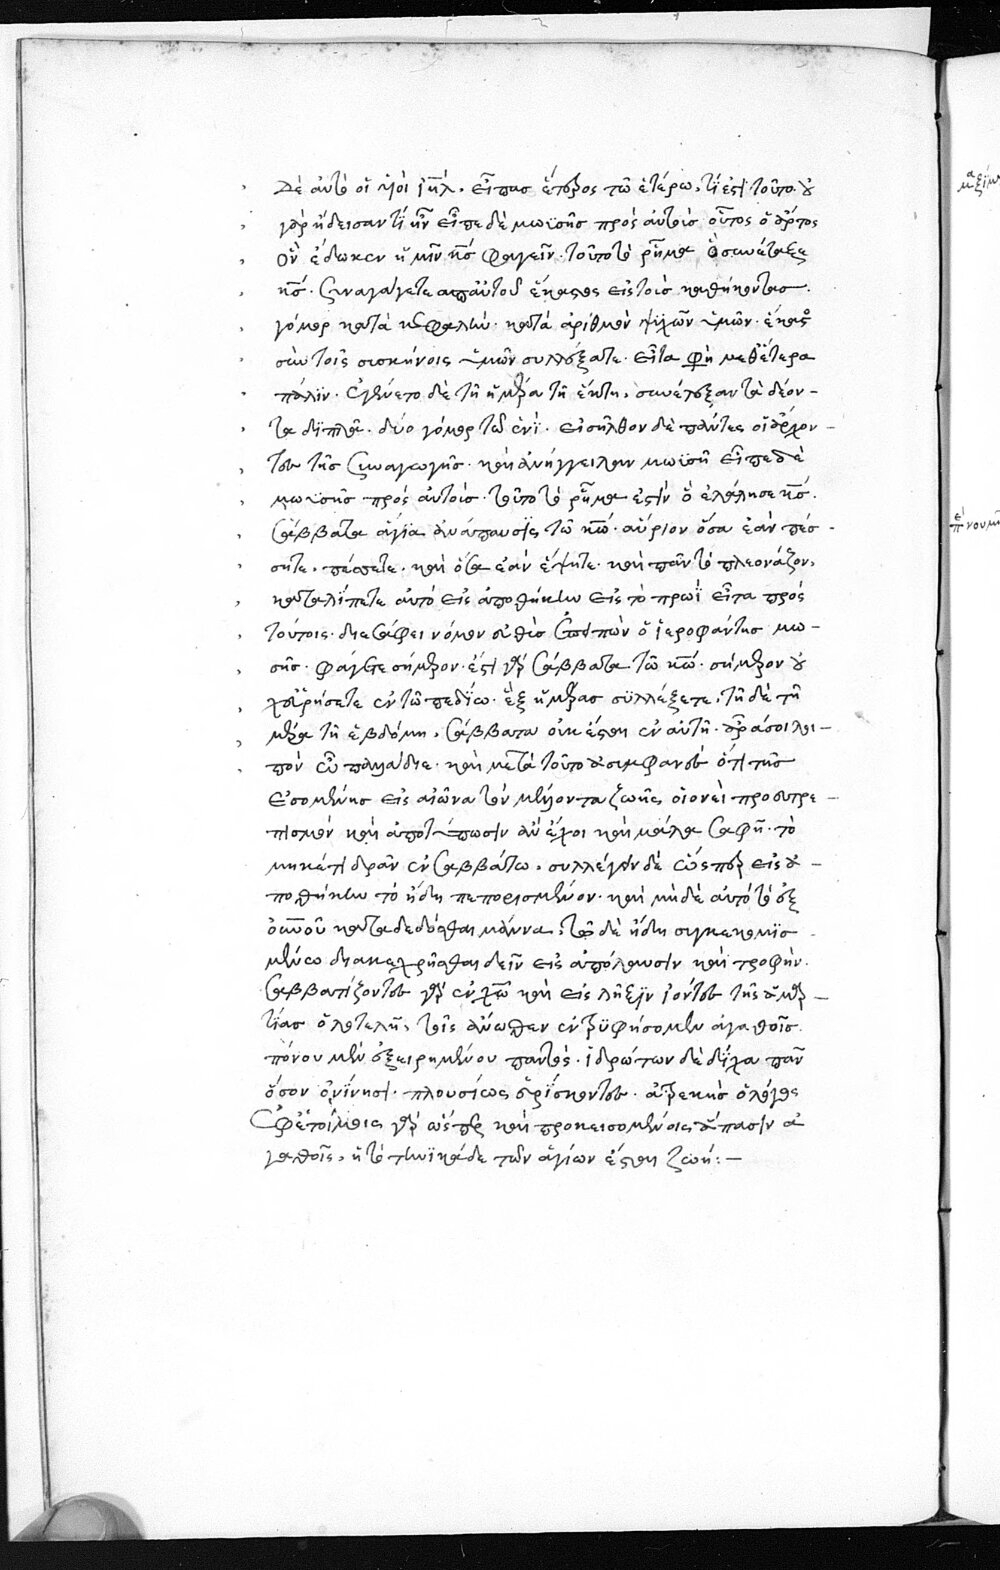 δὲ αὐτὸ οἱ υἱοὶ ἰηλ, εἶπας ἕτερος τῶ ἑτέρω, τί ἐστι τοῦτο. οὐ
γὰρ ἤδεισαν τί ἦν εἶπε δὲ μωϋσῆς πρὸς αὐτοὺς οὗτος ὁ ἄρτος
ὃν ἔδωκεν ὑμῖν κς φαγεῖν. τοῦτο τὸ ῥῆμα ὃ συνέταξε
κς. συναγάγετε ἀπ' αὐτοῦ ἕκαστος εἰς τοὺς καθήκοντας.
γόμορ κατὰ κεφαλήν. κατὰ ἀριθμὸν ψυχῶν ὑμῶν. ἕκαστος
σὺν τοῖς συσκήνοις ὑμῶν συλλέξατε. εἶτα φη μεθ' ἕτερα
πάλιν. ἐγένετο δὲ τῆ ἡμέρα τῆ ἕκτη, συνέλεξαν τὰ δέον-
τα διπλᾶ. δύο γόμορ τῶ ἑνί. εἰσῆλθον δὲ πάντες οἱ ἄρχον-
τες τῆς συναγωγῆς. καὶ ἀνήγγειλαν μωϋσῆ εἶπε δὲ
μωϋσῆς πρὸς αὐτοὺς. τοῦτο τὸ ῥῆμα ἐστὶν ὃ ἐλάλησε κς.
σάββατα ἁγία ἀνάπαυσις τῶ κω. αὔριον ὅσα ἐὰν πέσ-
σητε, πέσσετε. καὶ ὅσα ἐὰν ἕψητε. καὶ πᾶν τὸ πλεονάζον,
καταλίπετε αὐτὸ εἰς ἀποθήκην εἰς τὸ πρωΐ εἶτα πρὸς
τούτοις. διεσάφει νόμον αὖθις εἰπὼν ὁ ἱεροφάντης μω-
σῆς. φάγετε σήμερον. ἔστι γὰρ σάββατα τῶ κω. σήμερον οὐχ
εὑρήσετε ἐν τῶ πεδίω. ἓξ ἡμέρας συλλέξετε, τῆ δὲ ἡ
μέρα τῆ ἑβδόμη, σάββατα οὐκ ἔσται ἐν αὐτῆ. ἄρα σοι λοι-
πὸν οὐ παναίδια. καὶ μετὰ τοῦτο ἀσυμφανὲς ὅτι τῆς
ἐσομένης εἰς αἰῶνα τὸν μέλλοντα ζωῆς οἱονεὶ προευτρε-
πισμὸν καὶ ἀποτύπωσιν ἂν ἔχοι καὶ μάλα σαφῆ. τὸ
μηκέτι δρᾶν ἐν σαββάτω, συλλέγειν δὲ ὥσπερ εἰς ἀ-
ποθήκην τὸ ἤδη πεπορισμένον. καὶ μηδὲ αὐτὸ τὸ ἐξ
οὐνοῦ καταδεδέχθαι μάννα, τῶ δὲ ἤδη συγκεκομισ
μένω διακεχρῆσθαι δεῖν εἰς ἀπόλαυσιν καὶ τροφήν.
σαββατίζοντες γὰρ ἐν χῶ καὶ εἰς λῆξιν ἰόντες τῆς ἁμαρ-
τίας ὁλοτελῆ, τοῖς ἄνωθεν ἐντρυφήσομεν ἀγαθοῖς.
πόνου μὲν ἐξηρημένου παντὸς. ἱδρώτων δὲ δίχα πᾶν
ὅσον ὀνίνησι. πλουσίως εὑρίσκοντες. ἀτρεκὴς ὁ λόγος
ἐφ' ἑτοίμοις γὰρ ὥσπερ καὶ προκεισομένοις ἅπασιν ἀ
γαθοῖς, ἡ τὸ τηνικάδε τῶν ἁγίων ἔσται ζωή:-